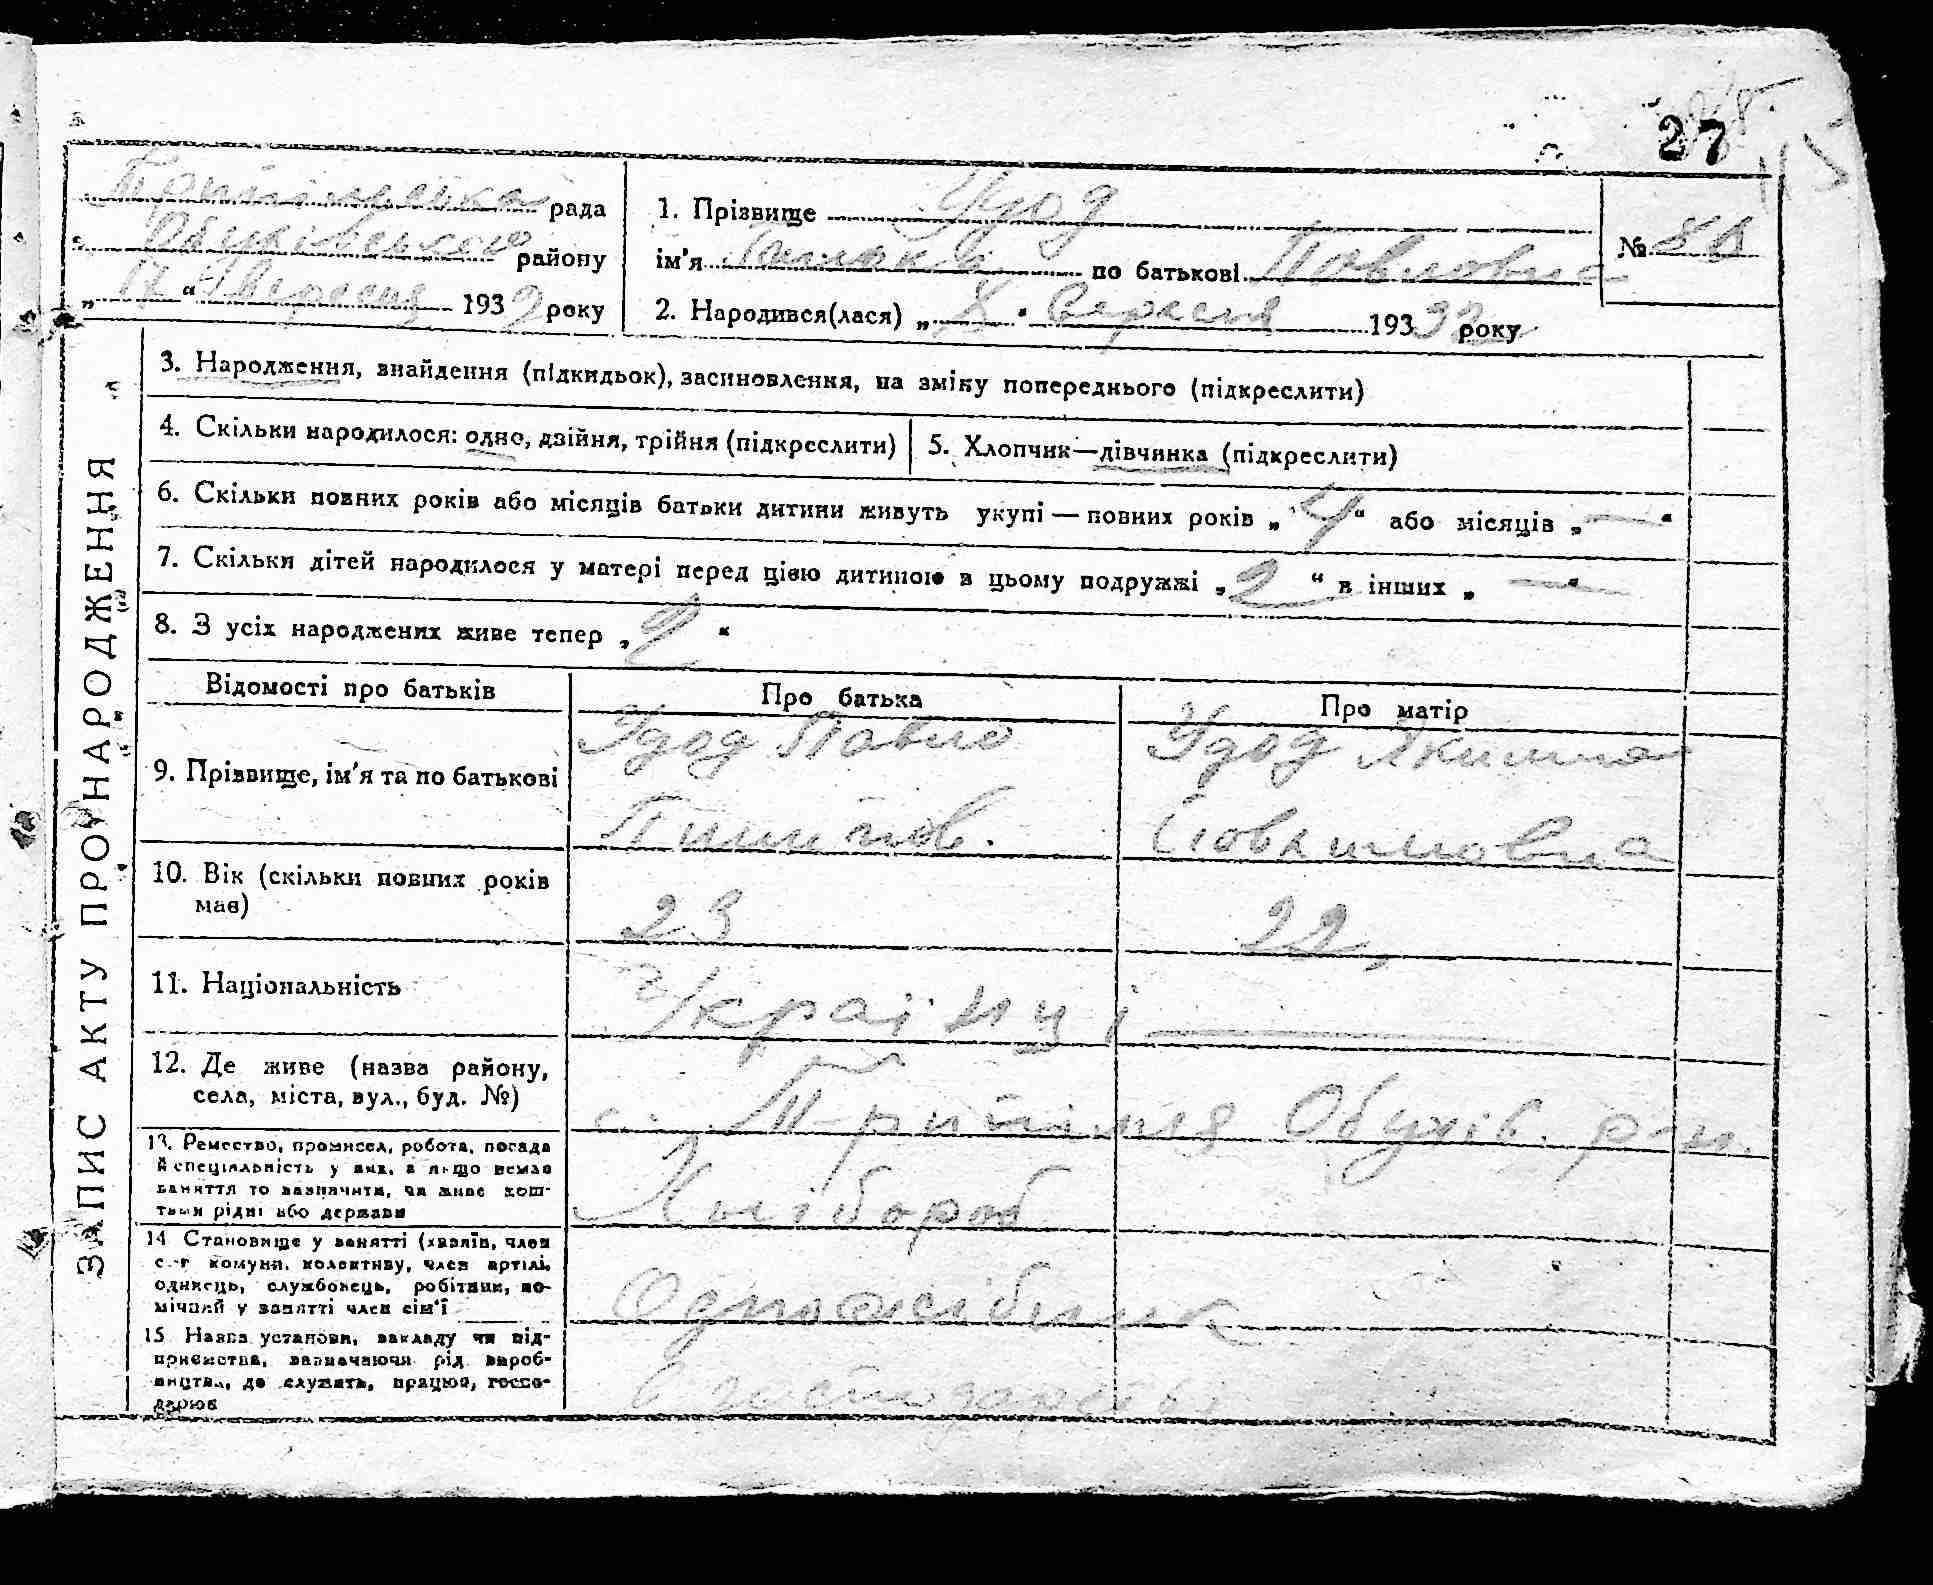 27
рада
Обухівського району
„ 17 “ Вересня 1932 року
1. Прізвище Удод
ім'я по батькові Павловна
2. Народився(лася) „ 8 “ Вересня 193 32 року
№
ЗАПИС АКТУ ПРО НАРОДЖЕННЯ
3. Народження, знайдення (підкидьок), засиновлення, на зміну попереднього (підкреслити)
4. Скільки народилося: одно, двійня, трійня (підкреслити)
5. Хлопчик—дівчинка (підкреслити)
6. Скільки повних років або місяців батьки дитини живуть укупі — повних років „ 4 “ або місяців „ — “
7. Скільки дітей народилося у матері перед цією дитиною в цьому подружжі „ 2 “ в інших „ — “
8. З усіх народжених живе тепер „ 2 “
Відомості про батьків
Про батька
Про матір
9. Прізвище, ім'я та по батькові
Удод Павло
Пилипов.
Удод Якилина
Йовхимовна
10. Вік (скільки повних років
має)
23
22
11. Національність
Українці
12. Де живе (назва району,
села, міста, вул., буд. №)
с. Обухів. р-н.
13. Ремество, промисел, робота, посада
й спеціяльність у них, а якщо немає
заняття то зазначити, чи живе кош-
тами рідні або держави
Хлібороб
14 Становище у занятті (хазяїн, член
с.-г комуни, колективу, член артілі,
одинець, службовець, робітник, по-
мічний у занятті член сім'ї
Одноосібник
15 Назва установи, закладу чи під-
приємства, зазначаючи рід вироб-
ництва, де служить, працює, госпо-
дарює
в господарстві